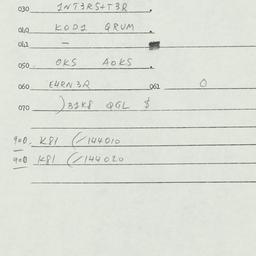 030 1NT3RS+T3R .
040 KOD1 QRUM .
041 –
050 OKS AOKS .
060 E4RN3R 061 0
070 )31K8 QGL $
900. K81 (/144010
900 K81 (/144020